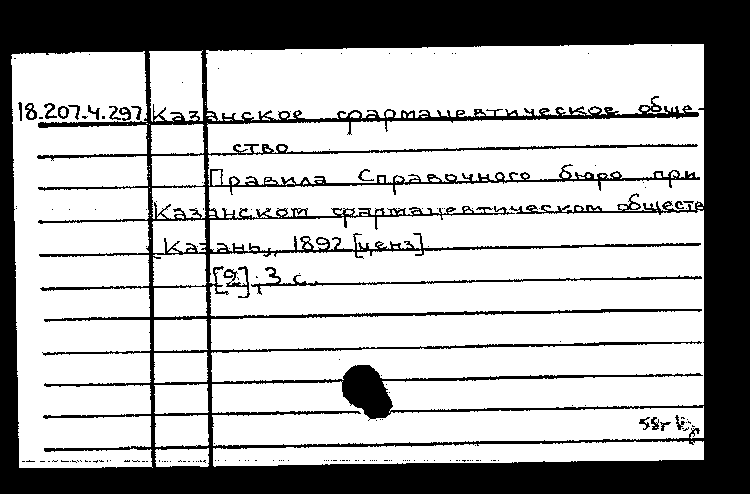 18.207.4.297. Казанское фармацевтическое обще-
ство
Правила Справочного бюро при
Казанском фармацевтическом обществ
Казань, 1892 [ценз]
[2], 3 с.